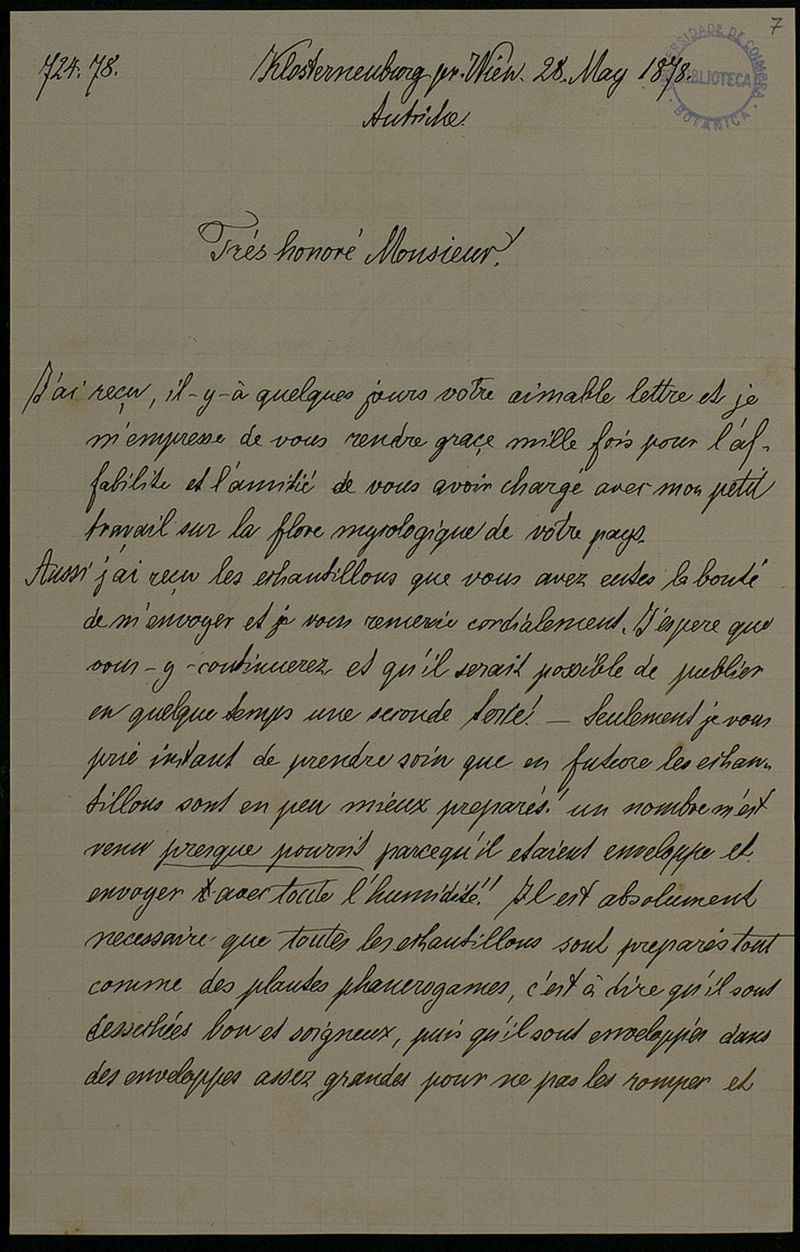 7
724. 78.
Klosterneuburg pr. Wien. 28. May 1878.
Autriche.
UNIVERSIDADE DE COIMBRA
BIBLIOTECA
BOTANICA
Trés honoré Monsieur!
J'ai reçu, il-y-à quelques jours votre aimable lettre et je
m'empresse de vous rendre graçe mille fois pour l'áf-
fabilite et l'ámitié de vous avoir chargé avec mon petit
travail sur la flore mycologique de votre pays.
Aussi j'ai reçu les echantillons que vous avez eutes la bouté
de m'envoyer et je vous remercie cordialement. J'éspere que
vous-y-continuerez et qu'il serait possible de publier
en quelque temps une seconde serie! — Seulement je vous
prie instant de prendre soin que en future les echan-
tillons sont en peu mieux preparés! un nombre m'ést
venu presque pourrit parcequ'il etaient enveloppe et
envoyer avec toute l'humidité!! Il est absolument
necessaire que toutes les echantillons sont preparés tout
comme des plantes phanerogames, c'est à dire qu'il sont
dessechées bon et soigneux, puis qu'il sont enveloppés dans
des enveloppes assez grandes pour ne pas les romper et